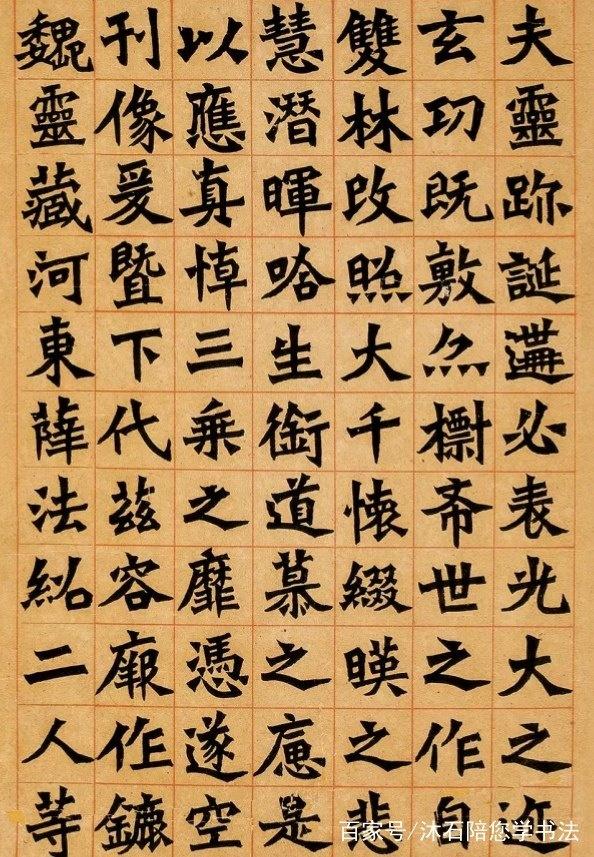 夫靈跡誕遘必表光大之迹
玄功既敷亦標希世之作自
雙林改照大千懷綴暎之悲
慧潛暉哈生銜道慕之是
以應真悼三乘之靡憑遂空
刊像爰暨下代茲容廓作鏕
魏靈藏河東薛法紹二人等
百家号/沐石陪您学书法